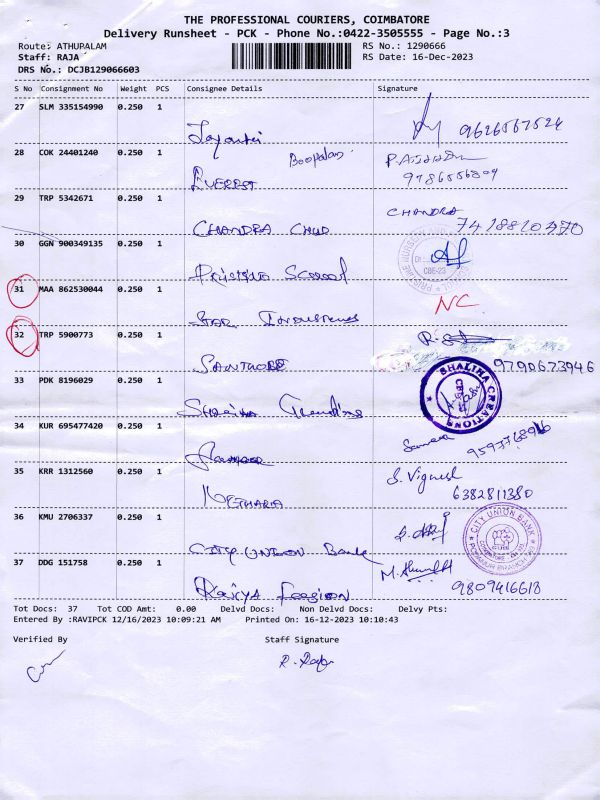 THE PROFESSIONAL COURIERS, COIMBATORE
Delivery Runsheet - PCK - Phone No.:0422-3505555 - Page No.:3
Route: ATHUPALAM RS No.: 1290666
Staff: RAJA RS Date: 16-Dec-2023
DRS No.: DCJB129066603
S No Consignment No Weight PCS Consignee Details Signature
27 SLM 335154990 0.250 1
Jayanthi 9626567524
28 COK 24401240 0.250 1
Boopalan
EVEREST 9786556809
29 TRP 5342671 0.250 1
CHANDRA
CHANDRA CHUD 7418810470
30 GGN 900349135 0.250 1
PRISTINE SCHOOL
31 MAA 862530044 0.250 1
NC
STAR INDUSTRIES
32 TRP 5900773 0.250 1
SANTHOSE 9790673946
33 PDK 8196029 0.250 1
SHALIHA CREATIONS
34 KUR 695477420 0.250 1
35 KRR 1312560 0.250 1
S. Vignesh
6382811380
36 KMU 2706337 0.250 1
CITY UNION BANK
CITY UNION Bank
37 DDG 151758 0.250 1
9809416618
Tot Docs: 37 Tot COD Amt: 0.00 Delvd Docs: Non Delvd Docs: Delvy Pts:
Entered By :RAVIPCK 12/16/2023 10:09:21 AM Printed On: 16-12-2023 10:10:43
Verified By Staff Signature
R. Raja